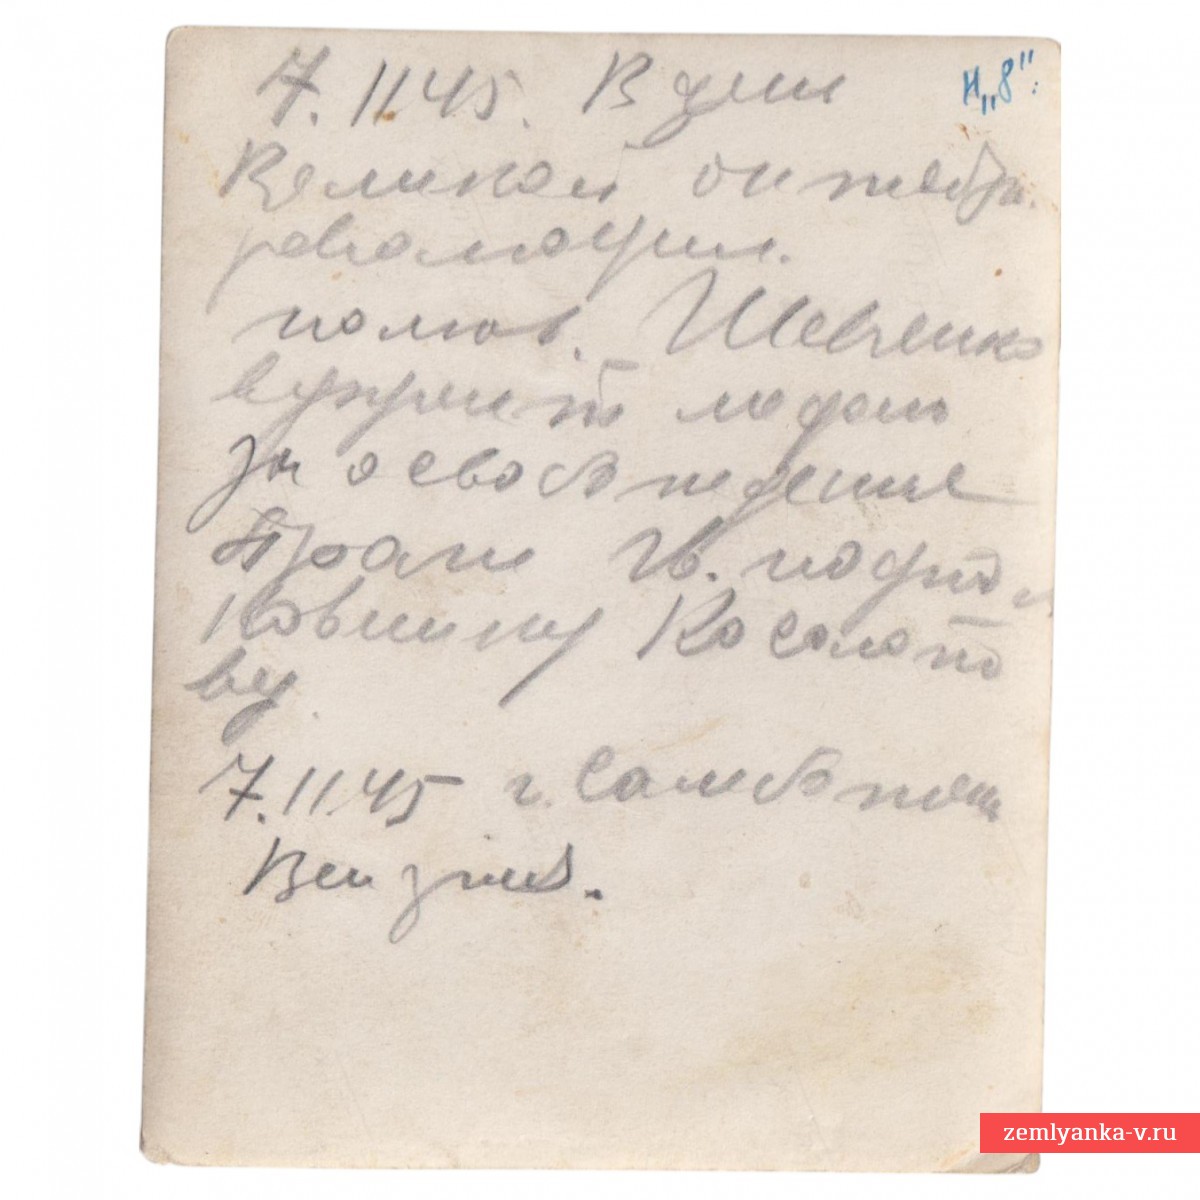 7.11.45. В дни Н„8":
Великой октябр.
революции.
полков. Шевченко
вручает медаль
за освобождение
Праги Гв. подпол
ковнику
ву.
7.11.45 г. Самбатели
Венгрия.
zemlyanka-v.ru